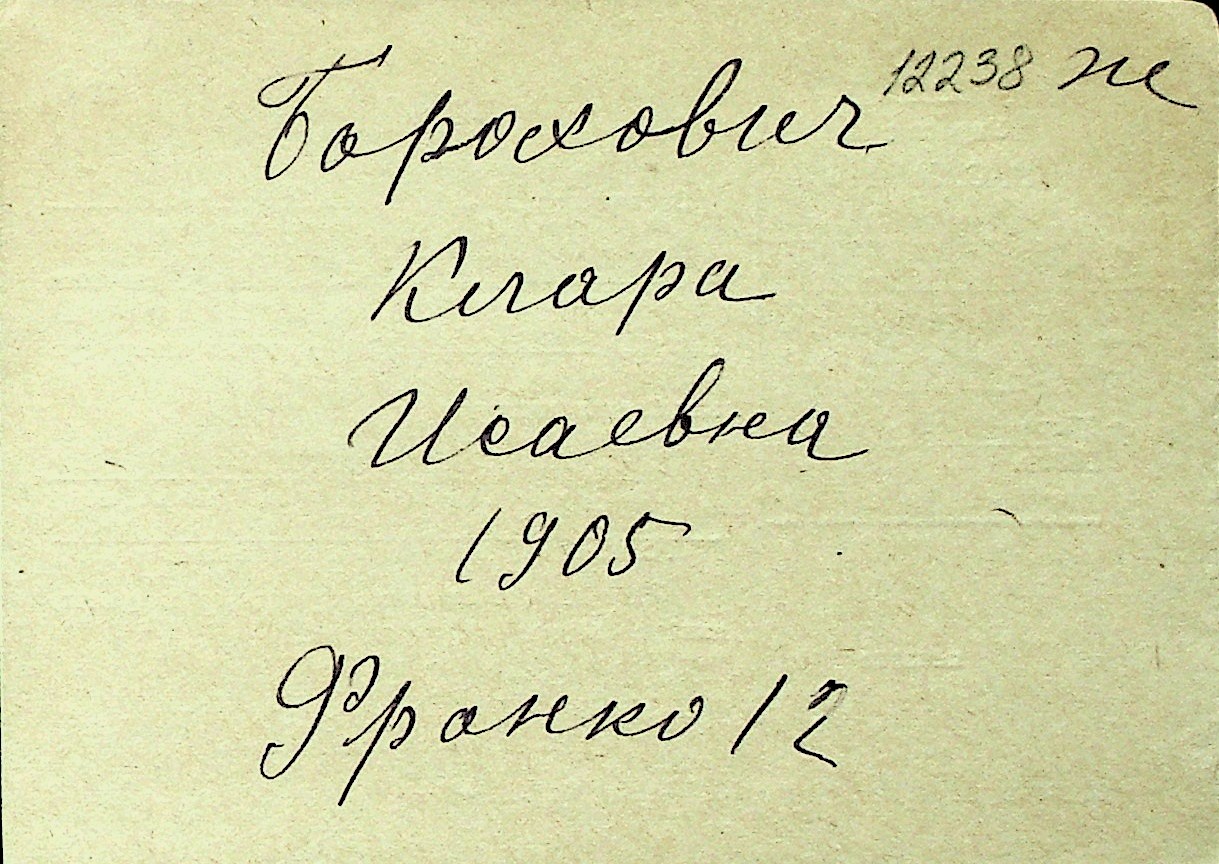 12238 ж
Борохович
Клара
Исаевна
1905
Франко 12